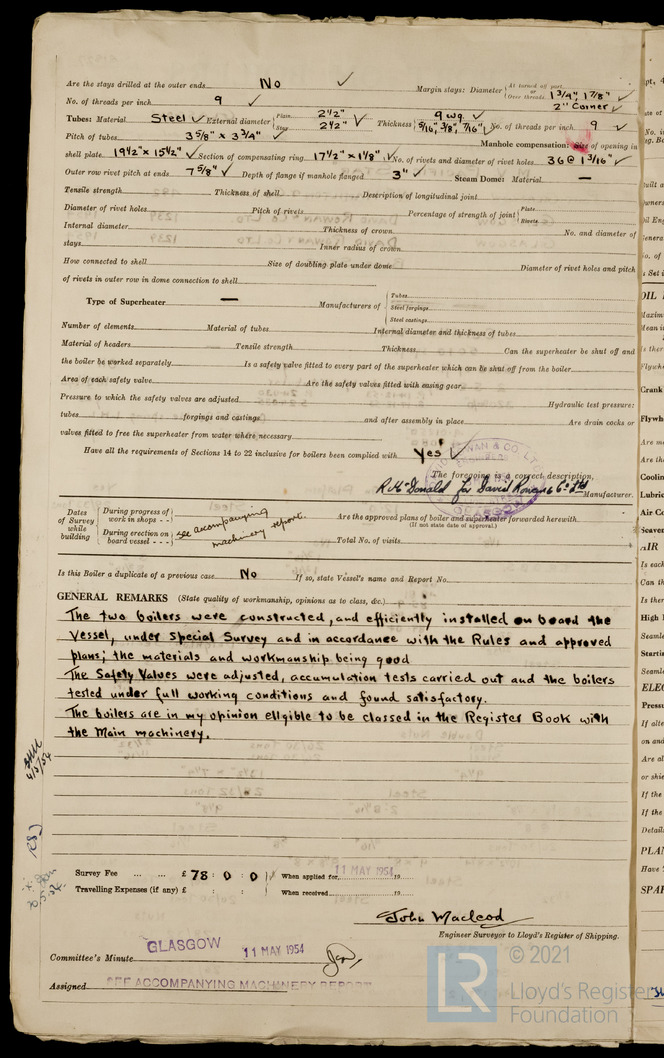 Are the stays drilled at the outer ends No ✓ Margin stays: Diameter { At turned off part, or Over threads 1 3/4", 1 7/8" ✓
No. of threads per inch 9 ✓ 2" Corner ✓
Tubes: Material Steel ✓ External diameter { Plain 2 1/2" Stay 2 1/2" ✓ Thickness { 9 wg. ✓ 5/16", 3/8", 7/16" ✓ No. of threads per inch 9 ✓
Pitch of tubes 3 5/8" x 3 3/4" ✓ Manhole compensation: Size of opening in
shell plate 19 1/2" x 15 1/2" ✓ Section of compensating ring 17 1/2" x 1 1/8" ✓ No. of rivets and diameter of rivet holes 36 @ 1 3/16" ✓
Outer row rivet pitch at ends 7 5/8" ✓ Depth of flange if manhole flanged 3" ✓ Steam Dome: Material —
Tensile strength Thickness of shell Description of longitudinal joint
Diameter of rivet holes Pitch of rivets Percentage of strength of joint { Plate Rivets
Internal diameter Thickness of crown No. and diameter of
stays Inner radius of crown
How connected to shell Size of doubling plate under dome Diameter of rivet holes and pitch
of rivets in outer row in dome connection to shell
Type of Superheater — Manufacturers of { Tubes Steel forgings Steel castings
Number of elements Material of tubes Internal diameter and thickness of tubes
Material of headers Tensile strength Thickness Can the superheater be shut off and
the boiler be worked separately Is a safety valve fitted to every part of the superheater which can be shut off from the boiler
Area of each safety valve Are the safety valves fitted with easing gear
Pressure to which the safety valves are adjusted Hydraulic test pressure:
tubes forgings and castings and after assembly in place Are drain cocks or
valves fitted to free the superheater from water where necessary
Have all the requirements of Sections 14 to 22 inclusive for boilers been complied with Yes ✓
The foregoing is a correct description,
for David Rowan & Co Ltd Manufacturer.
Dates of Survey while building { During progress of work in shops - - During erection on board vessel - - - } see accompanying machinery report.
Are the approved plans of boiler and superheater forwarded herewith
(If not state date of approval.)
Total No. of visits
Is this Boiler a duplicate of a previous case No If so, state Vessel's name and Report No.
GENERAL REMARKS (State quality of workmanship, opinions as to class, &c.)
The two boilers were constructed, and efficiently installed on board the
Vessel, under Special Survey and in accordance with the Rules and approved
plans; the materials and workmanship being good
The Safety Valves were adjusted, accumulation tests carried out and the boilers
tested under full working conditions and found satisfactory.
The boilers are in my opinion eligible to be classed in the Register Book with
the Main machinery.
Survey Fee ... ... £ 78 : 0 : 0 When applied for 11 MAY 1954 19
Travelling Expenses (if any) £ : : When received 19
John Macleod
Engineer Surveyor to Lloyd's Register of Shipping.
Committee's Minute GLASGOW 11 MAY 1954
Assigned SEE ACCOMPANYING MACHINERY REPORT
LR © 2021
Lloyd's Register
Foundation